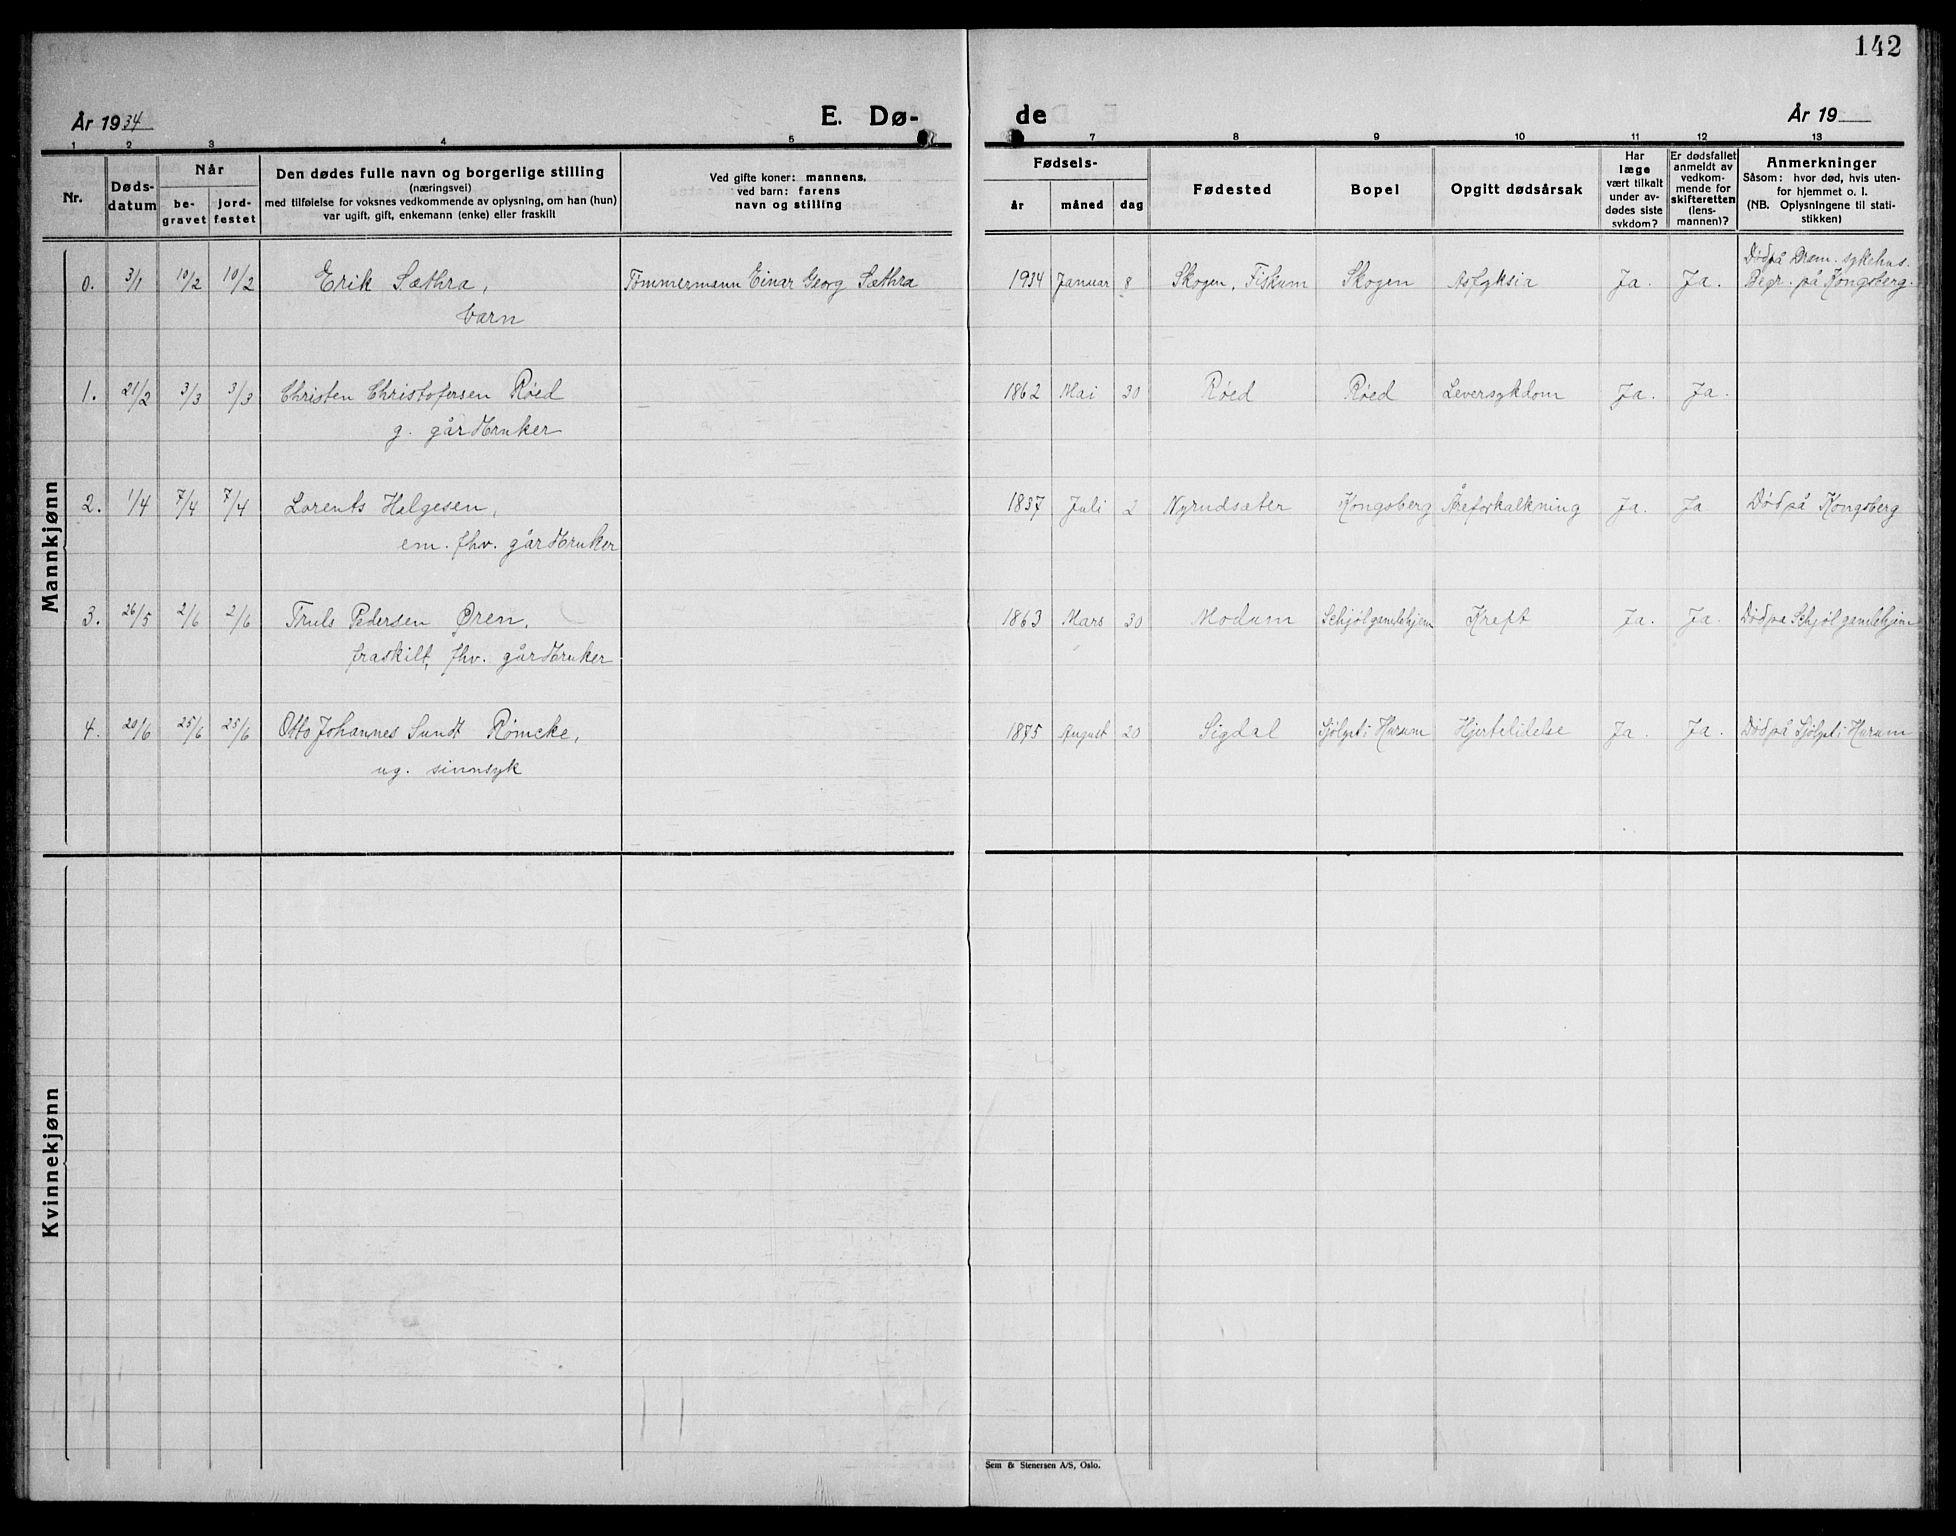 142
År 1934
E. Dø-
de
År 19
1 2 3 4 5
7 8 9 10 11 12 13
Nr.
Døds-
datum
Når
be-
gravet
jord-
festet
Den dødes fulle navn og borgerlige stilling
(næringsvei)
med tilføielse for voksnes vedkommende av oplysning, om han (hun)
var ugift, gift, enkemann (enke) eller fraskilt
Ved gifte koner: mannens,
ved barn: farens
navn og stilling
Fødsels-
år
måned
dag
Fødested
Bopel
Opgitt dødsårsak
Har
læge
vært tilkalt
under av-
dødes siste
sykdom?
Er dødsfallet
anmeldt av
vedkom-
mende for
skifteretten
(lens-
mannen)?
Anmerkninger
Såsom: hvor død, hvis uten-
for hjemmet o. l.
(NB. Oplysningene til stati-
stikken)
Mannkjønn
0. 3/1 10/2 10/2 Erik Sæthra, Tømmermann Einar Georg Sæthra 1934 Januar 8 Skogen, Fiskum Skogen Asfyksia Ja. Ja. Død på Dram. sykehus.
Barn Begr. på Kongsberg.
1. 21/2 3/3 3/3 Christen Christofersen Røed 1862 Mai 30 Røed Røed Leversykdom Ja. Ja.
g. gårdbruker
2. 1/4 7/4 7/4 Lorents Helgesen, 1837 Juli 2 Nyrudsæter Kongsberg Åreforkalkning Ja. Ja Død på Kongsberg
em. fhv. gårdbruker
3. 26/5 2/6 2/6 Truls Pedersen Øren, 1863 Mars 30 Modum Schjøl gamlehjem Kreft Ja. Ja. Død på Schjøl gamlehjem
fraskilt, fhv. gårdbruker
4. 20/6 25/6 25/6 Otto Johannes Sundt Rømcke, 1875 August 20 Sigdal i Hurum Hjertelidelse Ja. Ja. Død på i Hurum
ug. sinnsyk
Kvinnekjønn
Sem & Stenersen A/S, Oslo.